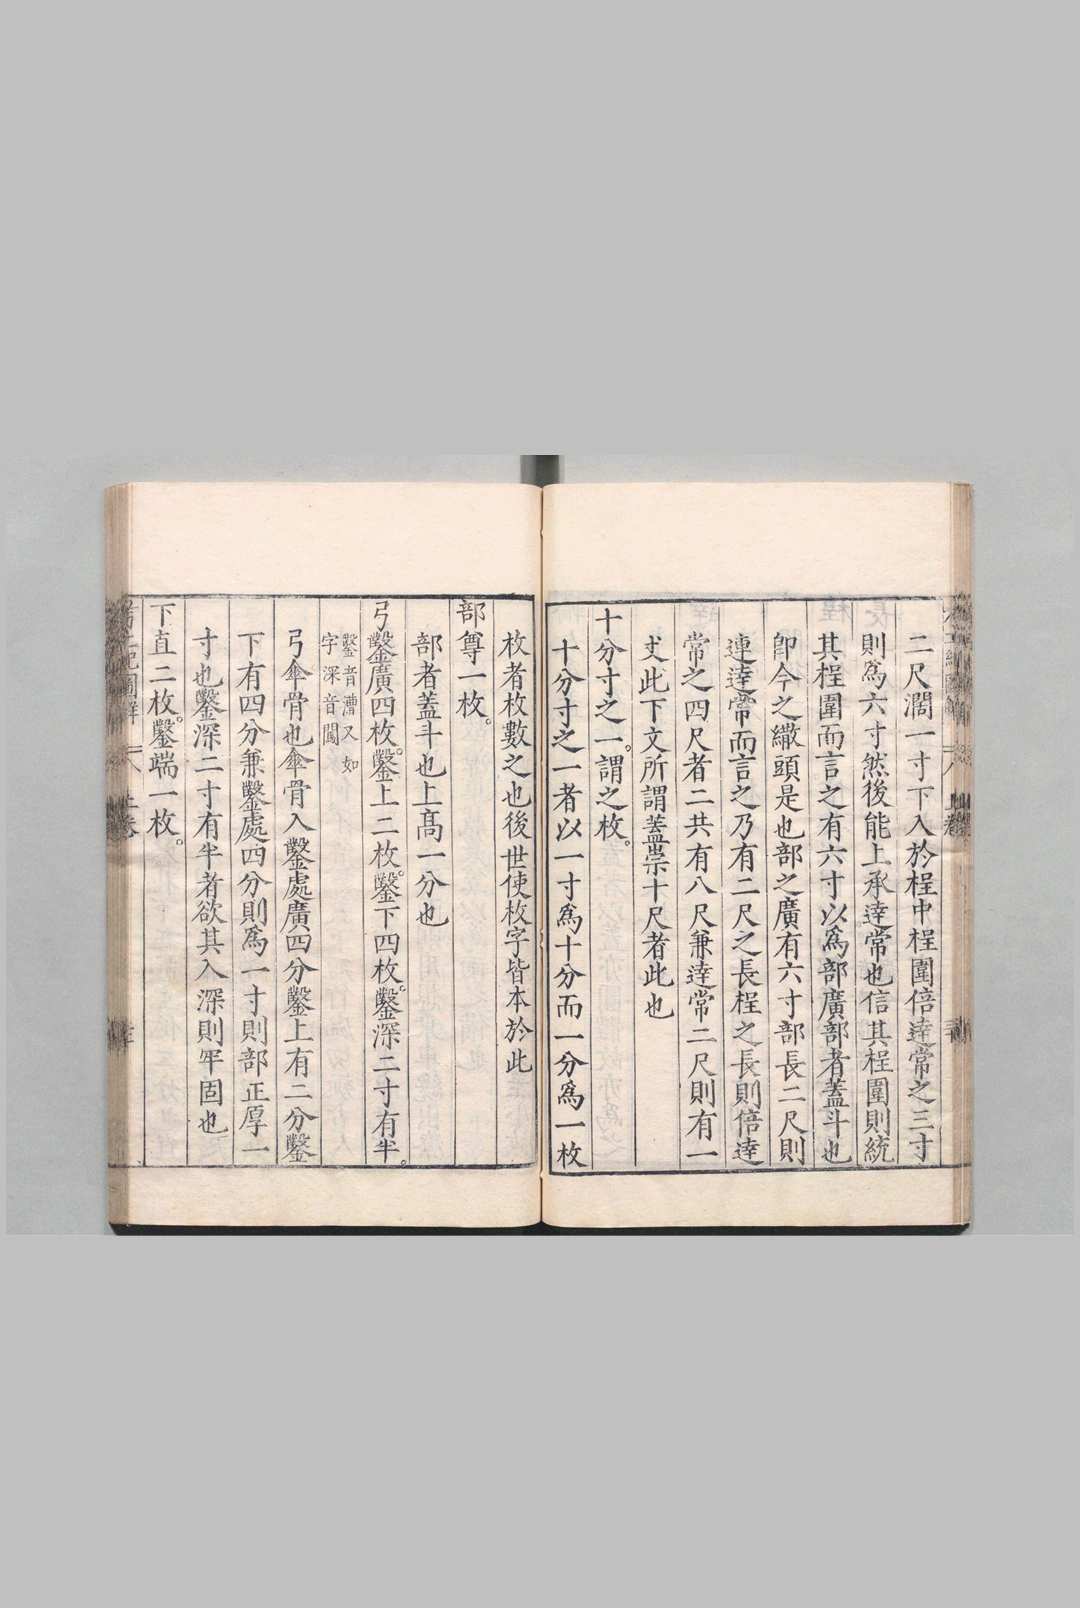 二尺濶一寸下入於桯中桯圍倍達常之三寸
則爲六寸然後能上承達常也信其桯圍則統
其桯圍而言之有六寸以爲部廣部者蓋斗也
卽今之繖頭是也部之廣有六寸部長二尺則
連達常而言之乃有二尺之長桯之長則倍達
常之四尺者二共有八尺兼達常二尺則有一
丈此下文所謂蓋崇十尺者此也
十分寸之一謂之枚。
十分寸之一者以一寸爲十分而一分爲一枚
枚者枚數之也後世使枚字皆本於此
部尊一枚。
部者蓋斗也上高一分也
弓鑿廣四枚。鑿上二枚。鑿下四枚。鑿深二寸有半。
鑿音漕又如
字深音闖
弓傘骨也傘骨入鑿處廣四分鑿上有二分鑿
下有四分兼鑿處四分則爲一寸則部正厚一
寸也鑿深二寸有半者欲其入深則牢固也
下直二枚。鑿端一枚。